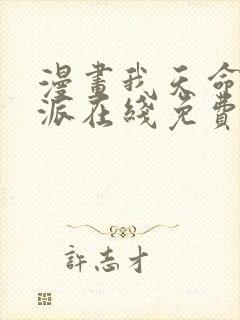 漫畫我天命
派在綫免費
許志才